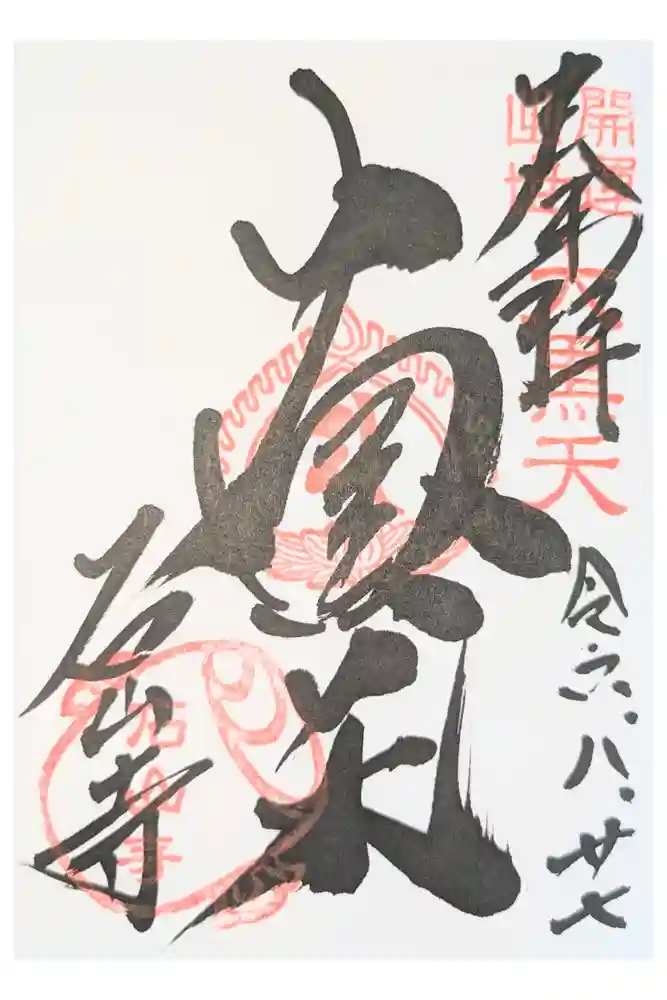 奉拝
開運
出世
大黒天
令六、八、廿七
大黒天
石山寺
石山寺